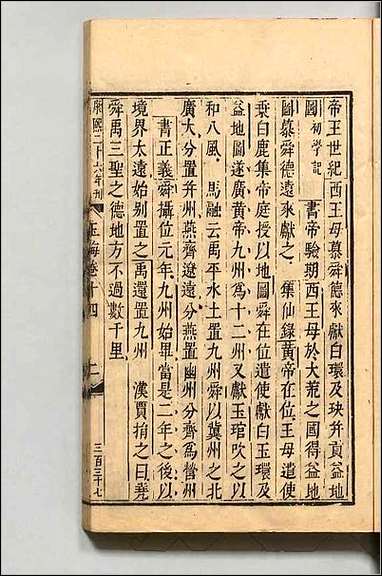 帝王世紀西王母慕舜德來獻白環及玦并貢益地
圖初學記　書帝驗期西王母於大荒之國得益地
圖慕舜德遠來獻之　集仙錄黃帝在位王母遣使
乗白鹿集帝庭授以地圖舜在位遣使獻白玉環及
益地圖遂廣黃帝九州爲十二州又獻玉琯吹之以
和八風　馬融云禹平水土置九州舜以冀州之北
廣大分置并州燕齊遼遠分燕置幽州分齊爲營州
書正義舜攝位元年九州始畢當是二年之後以
境界太遠始別置之禹還置九州　漢賈捐之曰堯
舜禹三聖之德地方不過數千里
康熙二十六年刊　玉海卷十四　二　三百三十七